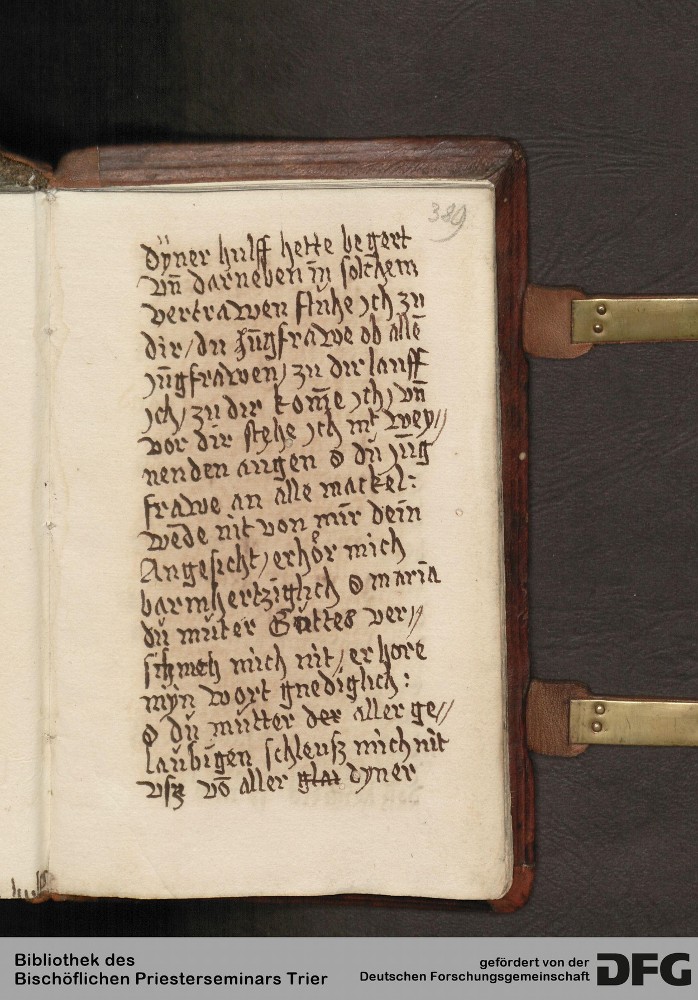 389
dÿner hulff hette begert
vn̄ darneben in solchem
vertrawen fluhe ich zu
dir/ du Jūgfrawe ob allē
jūgfrawen/ zu dir lauff
jch/ zu dir kom̄e jch/ vn̄
vor dir stehe jch mt wey//
nenden augen o du jūg
frawe an alle mackel:
wēde nit von mir dein
Angesicht/ erhör mich
barmhertziglich o maria
du muter Gottes ver//
mich nit/ erhore
myn wort gnediglich:
o du mutter der aller ge//
laubigen schleusz mich nit
vsz vō aller dyner
Bibliothek des
Bischöflichen Priesterseminars Trier
gefördert von der
Deutschen Forschungsgemeinschaft
DFG